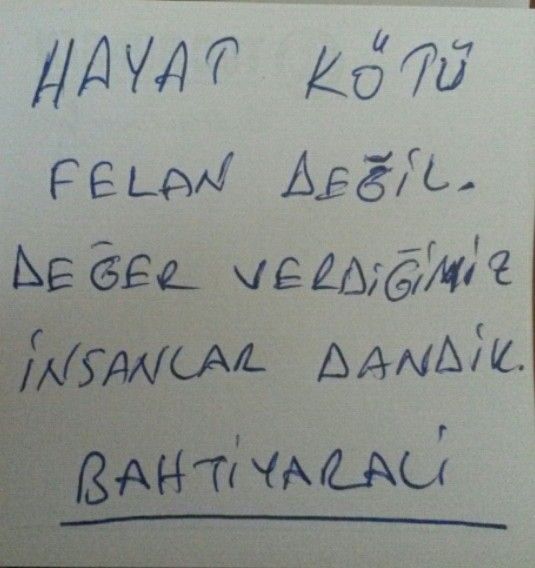 HAYAT KÖTÜ
FELAN DEĞİL.
DEĞER VERDİĞİMİZ
İNSANLAR DANDİK.
BAHTİYARALİ